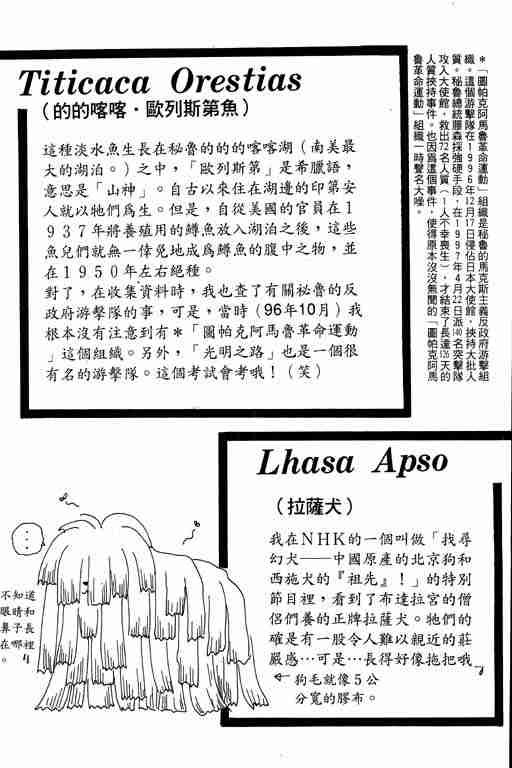 Titicaca Orestias
（的的喀喀・歐列斯第魚）
這種淡水魚生長在秘魯的的的喀喀湖（南美最
大的湖泊。）之中，「歐列斯第」是希臘語，
意思是「山神」。自古以來住在湖邊的印第安
人就以牠們爲生。但是，自從美國的官員在１
９３７年將養殖用的鱒魚放入湖泊之後，這些
魚兒們就無一倖免地成爲鱒魚的腹中之物，並
在１９５０年左右絕種。
對了，在收集資料時，我也查了有關祕魯的反
政府游擊隊的事，可是，當時（96年10月）我
根本沒有注意到有＊「圖帕克阿馬魯革命運動
」這個組織。另外，「光明之路」也是一個很
有名的游擊隊。這個考試會考哦！（笑）
＊「圖帕克阿馬魯革命運動」組織是秘魯的馬克斯主義反政府游擊組
織。這個游擊隊在１９９６年12月17日侵佔日本大使館，挾持大批人
質。秘魯總統藤森採強硬手段，在１９９７年４月22日派140名突擊隊
攻入大使館，救出72名人質（１人不幸喪生），才結束了長達126天的
人質挾持事件。也因爲這個事件，使得原本沒沒無聞的「圖帕克阿馬
魯革命運動」組織一時聲名大噪。
Lhasa Apso
（拉薩犬）
我在ＮＨＫ的一個叫做「找尋
幻犬──中國原產的北京狗和
西施犬的『祖先』！」的特別
節目裡，看到了布達拉宮的僧
侶們養的正牌拉薩犬。牠們的
確是有一股令人難以親近的莊
嚴感…可是…長得好像拖把哦
狗毛就像５公
分寬的膠布。
…
不知道
眼睛和
鼻子長
在哪裡
。